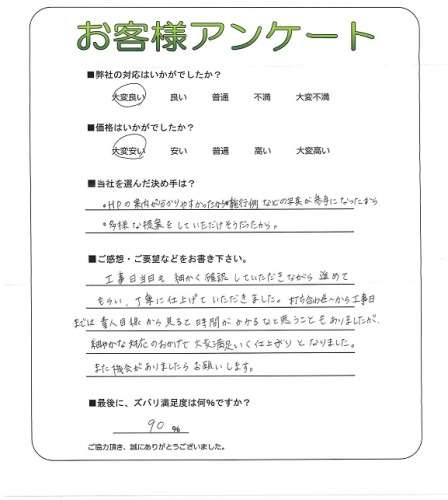 お客様アンケート
■弊社の対応はいかがでしたか？
大変良い 良い 普通 不満 大変不満
■価格はいかがでしたか？
大変安い 安い 普通 高い 大変高い
■当社を選んだ決め手は？
・HPの案内が分かりやすかったから・施行例などの写真が参考になったから
・多様な提案をしていただけそうだったから。
■ご感想・ご要望などをお書き下さい。
工事日当日も細かく確認していただきながら進めて
もらい、丁寧に仕上げていただきました。打ち合わせから工事日
までは素人目線から見ると時間がかかるなと思うこともありましたが、
細やかな対応のおかげで大変満足いく仕上がりとなりました。
また機会がありましたらお願いします。
■最後に、ズバリ満足度は何%ですか？
90 %
ご協力頂き、誠にありがとうございました。